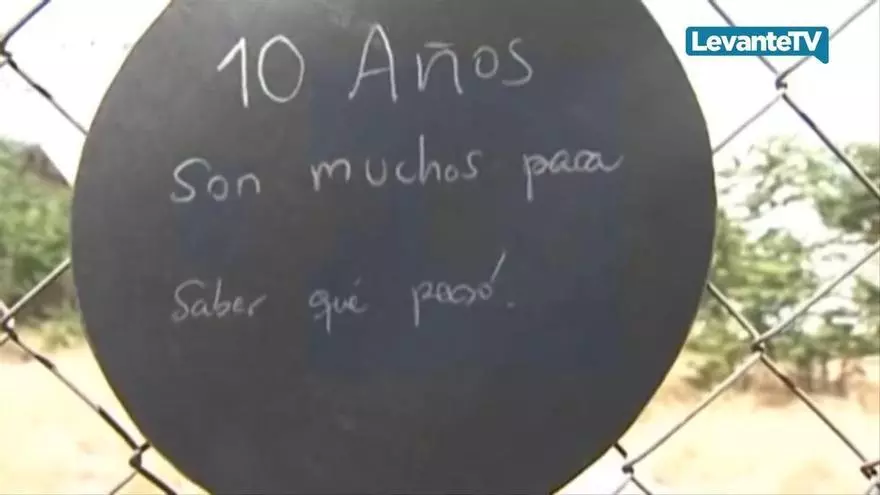 LevanteTV
10 Años
Son muchos para
Saber qué pasó.